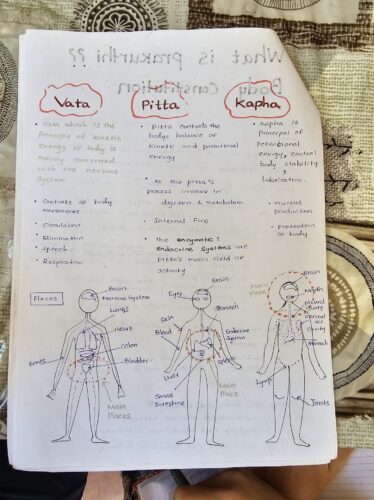 What is prakurthi ??
Body constitution
Vata
Pitta
Kapha
• Vata which is the
Principle of kinetic
energy of body is
mainly concerned
with the nervous
System
• Controls all body
movments
• Circulation
• Elimination
• Speech.
• Respiration
• Pitta controls the
bodys balance of
kinetic and potational
energy
• All the pitta's
process involve in
digestion & metabolism
• Internal Fire
• The enzymatic &
Endocrine Systems are
pitta's main field of
activity
• Kapha is
Principal of
Potentional
energy, control
body stability
&
Lubrication.
• mucous
production
• Protection
of body
Places
Brain
Nervous System
Lungs
Heart
Colon
Bladder
Bones
Main
Places
Brain
Eyes
Skin
Blood
Stomach
Endocrine
System
Spleen
Liver
Small
Intestine
Main
Place
Main
Place
Brain
Mouth
Pleural
Cavity
Cavity
Stomach
Lymph
Joints